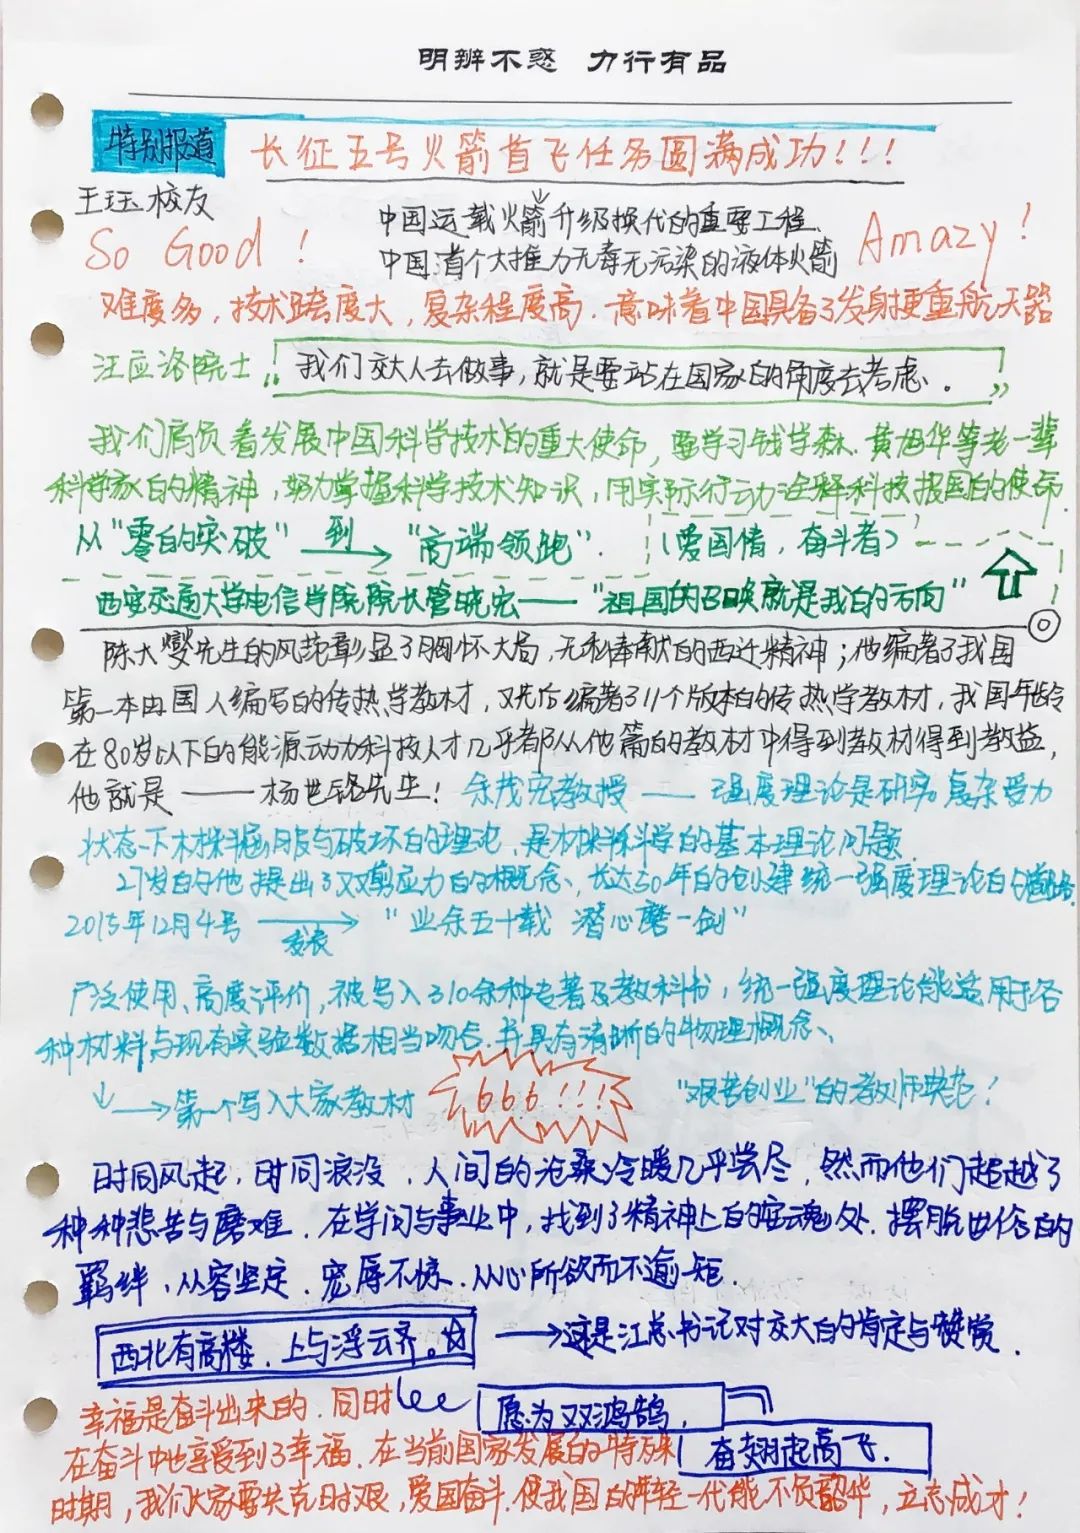 明辨不惑 力行有品
特别报道 长征五号火箭首飞任务圆满成功!!!
王珏校友
中国运载火箭升级换代的重要工程.
So Good! 中国首个大推力无毒无污染的液体火箭 Amazy!
难度多,技术跨度大,复杂程度高.意味着中国具备了发身更重航天器
汪应洛院士"我们交大人去做事,就是要站在国家的角度去考虑、."
我们肩负着发展中国科学技术的重大使命,要学习钱学森.黄旭华等老一辈
科学家的精神,努力掌握科学技术知识,用实际行动诠释科技报国的使命.
从"零的突破" 到→ "高端领跑". (爱国情,奋斗者)
西安交通大学电信学院院长管晓宏——"祖国的召唤就是我的方向"
陈大燮先生的风范彰显了胸怀大局,无私奉献的西迁精神;他编著了我国
第一本由国人编写的传热学教材,又先后编著了11个版本的传热学教材,我国年龄
在80岁以下的能源动力科技人才几乎都从他篇的教材中得到教材得到教益,
他就是——杨世铭先生! 俞茂宏教授——强度理论是研究复杂受力
状态下材料屈服与破坏的理论,是材料科学的基本理论问题.
27岁的他提出了双剪应力的概念、长达50年的创建统一强度理论的道路.
2015年12月4号 发表→ "业余五十载 潜心磨一剑"
广泛使用、高度评价,被写入310余种专著及教科书,统一强度理论能适用于各
种材料与现有实验数据相当吻合.并具有清晰的物理概念、
↓→第一个写入大家教材 666!!! "艰苦创业"的教师典范!
时间风起,时间浪没,人间的沧桑冷暖几乎尝尽,然而他们超越了
种种悲苦与磨难.在学问与事业中,找到了精神上的安魂处.摆脱世俗的
羁绊,从容坚定.宠辱不惊.从心所欲而不逾矩.
西北有高楼.上与浮云齐。☆ →这是江总书记对交大的肯定与赞赏.
幸福是奋斗出来的.同时 愿为双鸿鹄,
在奋斗中也享受到了幸福.在当前国家发展的特殊 奋翅起高飞.
时期,我们大家要共克时艰,爱国奋斗.使我国的年轻一代能不负韶华,立志成才!